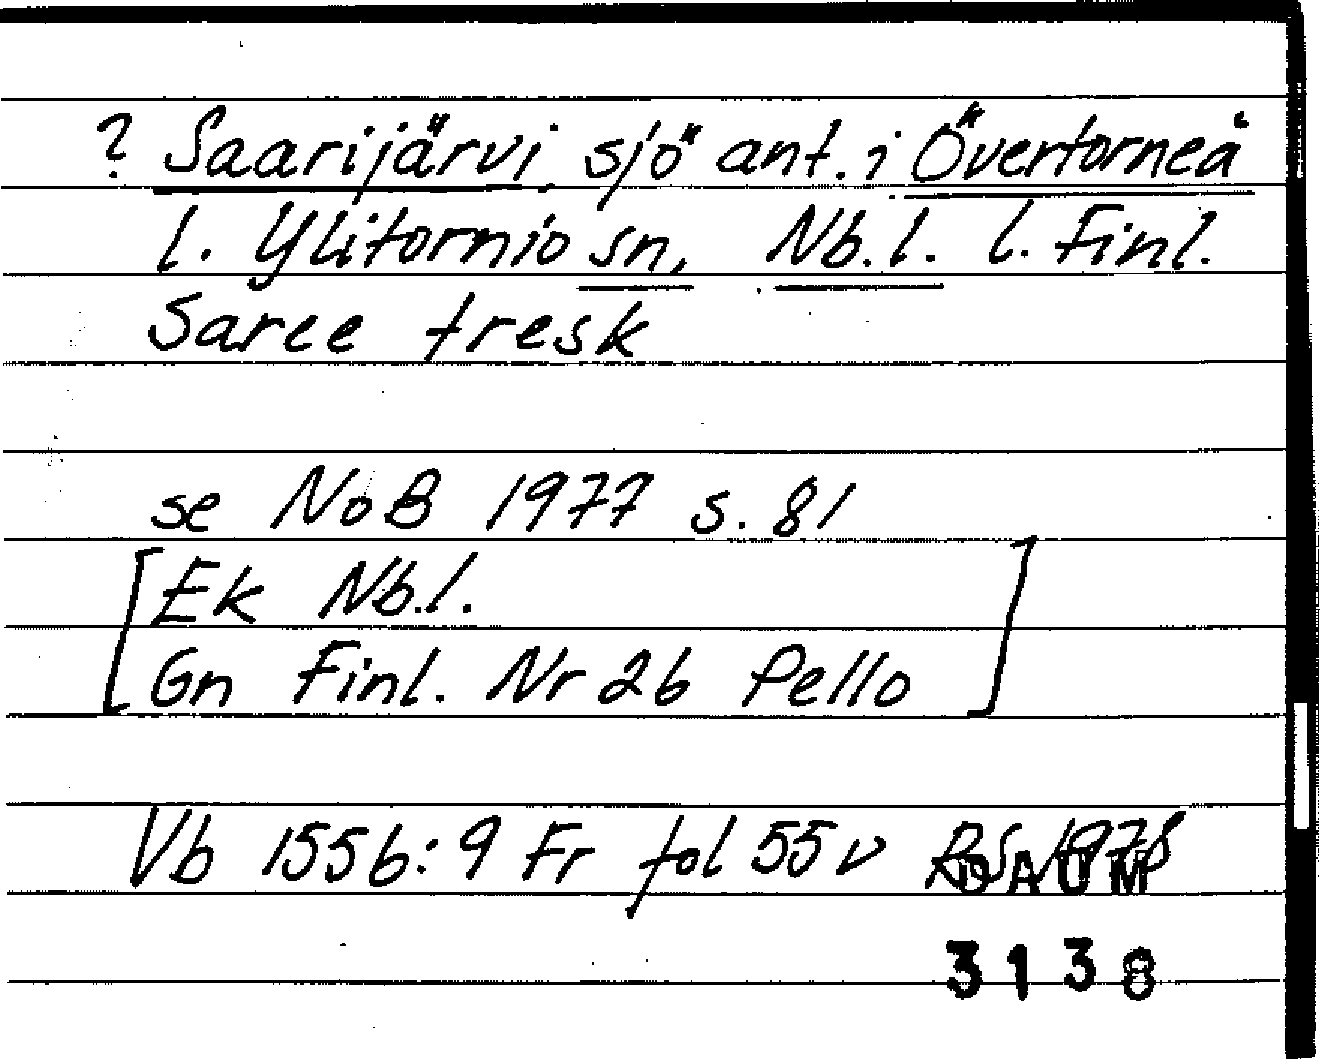 ? Saarijärvi, sjö ant. i Övertorneå
l. Ylitornio sn, Nb.l. l. Finl.
Saree tresk
se NoB 1977 s. 81
[Ek Nb.l.
Gn Finl. Nr 26 Pello]
Vb 1556:9 Fr fol 55 v RS 1978
DAUM
3138